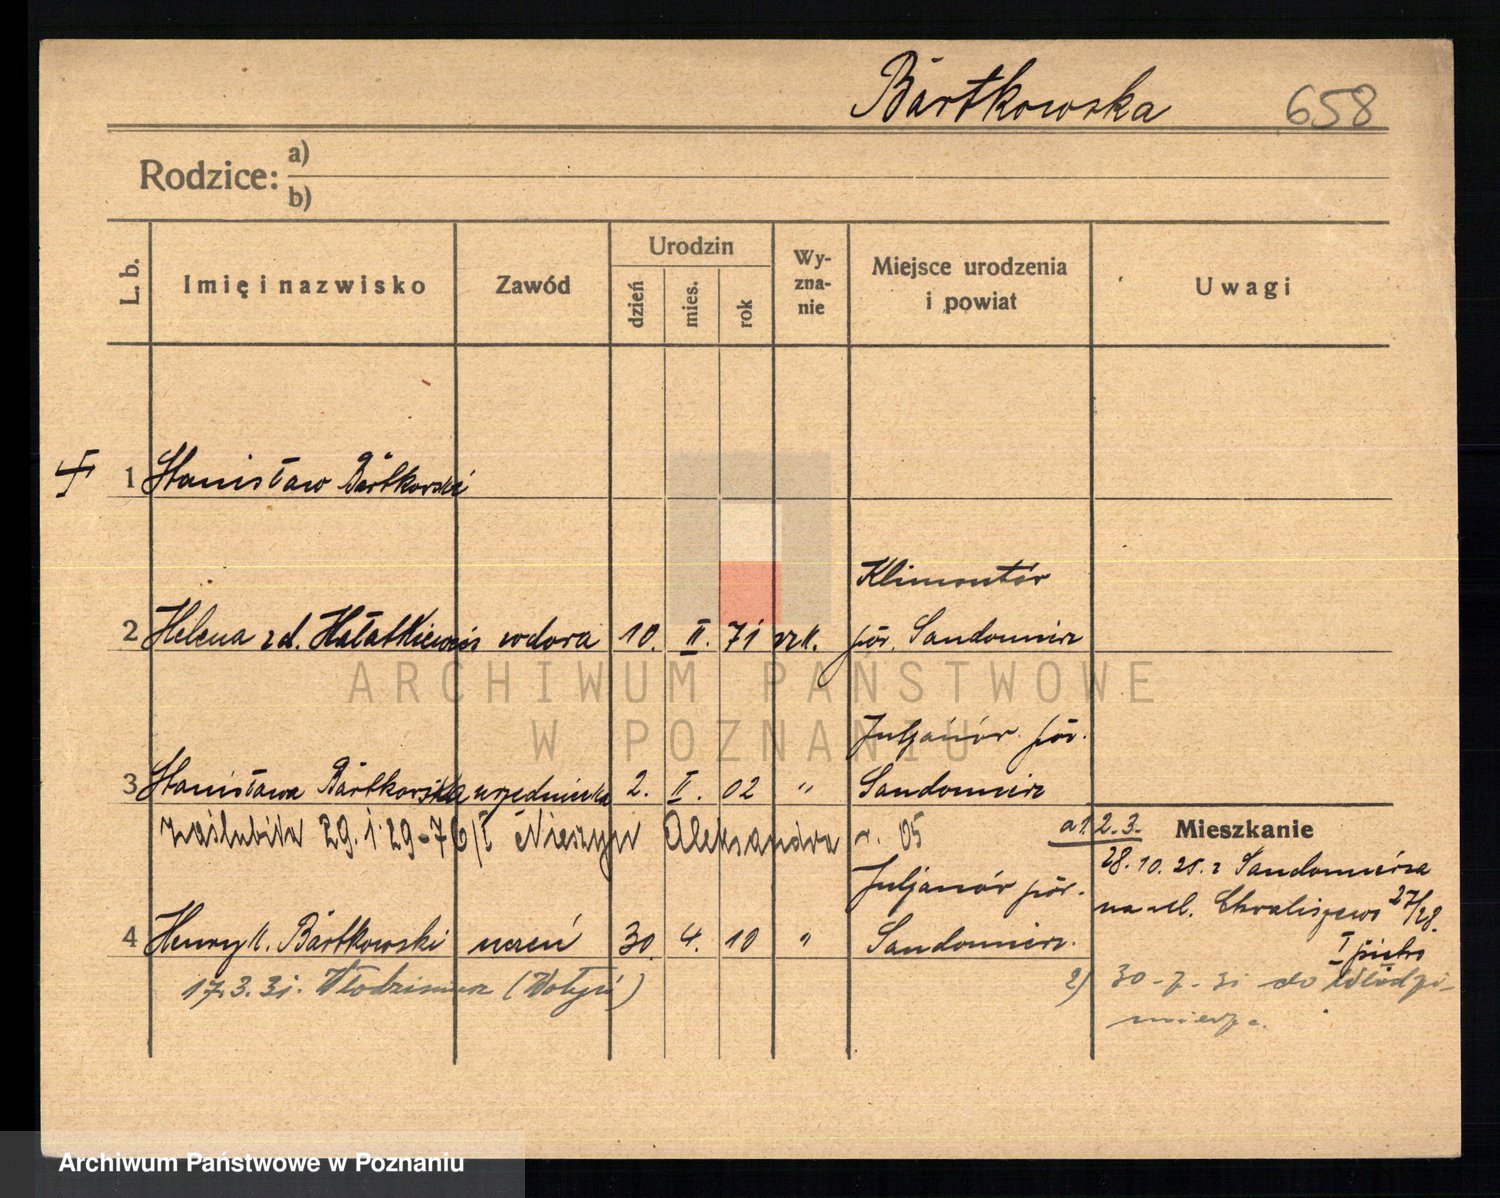 Bartkowska 658
Rodzice: a)
b)
L. b. Imię i nazwisko Zawód Urodzin dzień mies. rok Wy-zna-nie Miejsce urodzenia i powiat Uwagi
1 Stanisław Bartkowski
Klimontów
2 Helena zd. wdowa 10. II. 71 rzk. pow. Sandomierz
ARCHIWUM PAŃSTWOWE
W POZNANIU
Juljanów pow.
3 Stanisława Bartkowska urzędniczka 2. II. 02 " Sandomierz
zaślubiła 29.1.29 - Aleksandra r. 05
a1 2. 3. Mieszkanie
28.10.25. z Sandomierza
Juljanów pow.
na ul. Chwaliszewo 27/28.
4 Henryk Bartkowski uczeń 30. 4. 10 " Sandomierz.
I piętro
17.3.31. Włodzimierz (Wołyń)
2) 30-7-31 do Włodzi-
mierza.
Archiwum Państwowe w Poznaniu